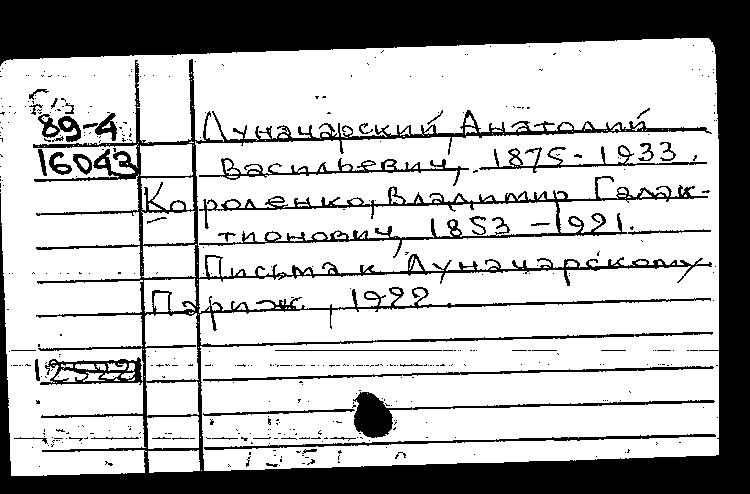 89-4 Луначарский, Анатолий
16043 Васильевич, 1875-1933.
Короленко, Владимир Галак-
тионович, 1853-1921.
Письма к Луначарскому
Париж, 1922.
12522